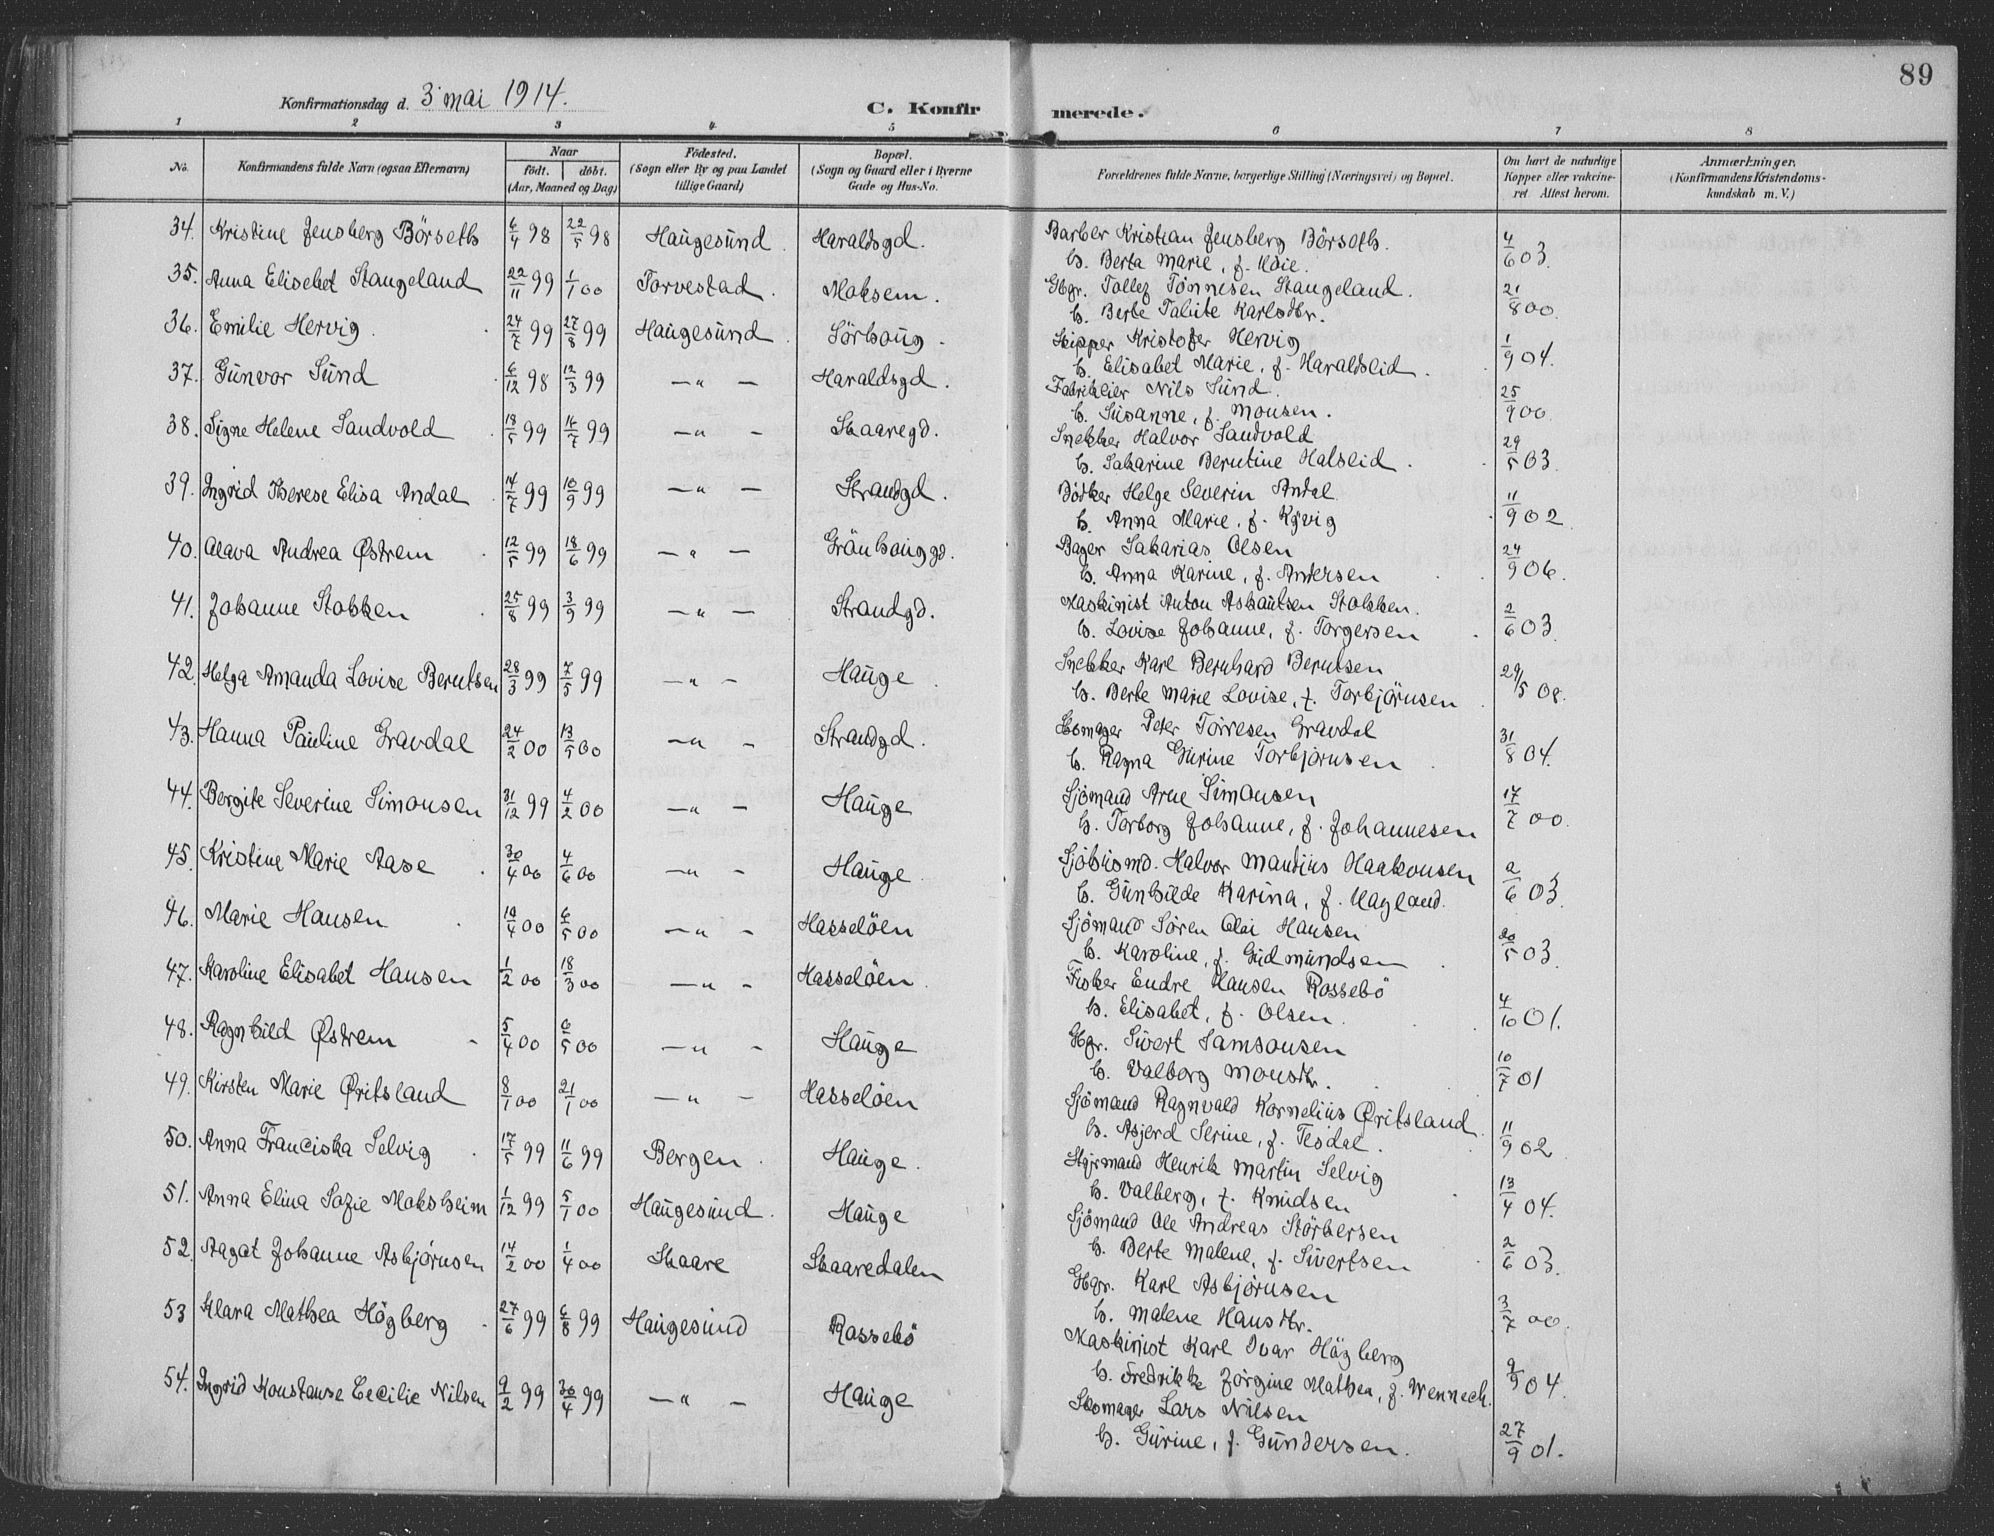 89
Konfirmationsdag d. 3 mai 1914.
C. Konfirmerede.
1 2 3 4 5 6 7 8
No. Konfirmandens fulde Navn (ogsaa Efternavn) Naar födt. döbt. (Aar, Maaned og Dag) Födested. (Sogn eller By og paa Landet tillige Gaard) Bopæl. (Sogn og Gaard eller i Byerne Gade og Hus-No. Forældrenes fulde Navne, borgerlige Stilling (Næringsvei) og Bopæl. Om havt de naturlige Kopper eller vakcineret Attest herom. Anmærkninger. (Konfirmandens Kristendomskundskab m. V.)
34. Kristine Jensberg Börseth 6/4 98 22/5 98 Haugesund. Haraldsgd. Barber Kristian Jensberg Börseth. 4/6 03.
h. Berta Marie, f.
35. Anna Elisebet Stangeland 22/11 99 1/1 00 Torvestad. Moksem. Gbgr. Tönnesen Stangeland. 21/8 00.
h. Berte Karlsdtr.
36. Emilie Hervig. 24/7 99 27/8 99 Haugesund. Sörhaug. Skipper Kristofer Hervig 1/9 04.
h. Elisabet Marie, f. Haraldseid.
37. Gunvor Sund 6/12 98 12/3 99 —„— Haraldsgd. Fabrikeier Nils Sund. 25/9 00.
h. Susanne, f. Monsen.
38. Signe Helene Sandvold 18/5 99 16/7 99 —„— Skaaregd. Snekker Halvor Sandvold 29/5 03.
h. Sakarine Berntine Halseid.
39. Ingrid Therese Elisa Andal 14/7 99 10/9 99 —„— Strandgd. Bödker Helge Severin Andal 11/9 02.
h. Anna Marie, f. Kyvig
40. Olava Andrea Østrem 12/5 99 18/6 99 —„— Grönhauggd. Bager Sakarias Olsen 24/9 06.
h. Anna Karine, f. Andersen
41. Johanne Stokken 25/8 99 3/9 99 —„— Strandgd. Maskinist Anton Stokken. 2/6 03.
h. Lovise Johanne, f. Torgersen
42. Helga Amanda Lovise Berntsen 28/3 99 7/5 99 —„— Hauge Snekker Karl Bernhard Berntsen 29/5 08.
h. Berte Marie Lovise, f. Torbjörnsen
43. Hanna Pauline Gravdal 24/2 00 13/5 00 —„— Strandgd. Skomager Peter Torresen Gravdal 31/8 04.
h. Ragna Gurine Torbjörnsen
44. Bergite Severine Simonsen 31/12 99 4/2 00 —„— Hauge Sjömand Arne Simonsen 17/7 00.
h. Torborg Johanne, f. Johannesen
45. Kristine Marie Aase 30/4 00 4/6 00 —„— Hauge. Sjöhusmd. Halvor Mandius Haakonsen 2/6 03.
h. Gunhilde Karina, f. Hagland.
46. Marie Hansen 10/4 00 6/5 00 —„— Hasselöen Sjömand Sören Olai Hansen 20/5 03.
h. Karoline, f. Gudmundsen
47. Karoline Elisabet Hansen 1/2 00 18/3 00 —„— Hasselöen. Fisker Endre Hansen Rossebö 4/10 01.
h. Elisabet, f. Olsen.
48. Ragnhild Østrem 5/4 00 6/5 00 —„— Hauge Gbgr. Sivert Samsonsen 10/7 01
h. Valborg Monsdtr.
49. Kirsten Marie Øritsland 8/1 00 21/1 00 —„— Hasselöen Sjömand Ragnvald Kornelius Øritsland. 11/9 02.
h. Asjerd Serine, f. Tesdal.
50. Anna Franciska Selvig 17/5 99 11/6 99 Bergen. Hauge. Styrmand Henrik Martin Selvig 13/4 04.
h. Valberg, f. Knudsen
51. Anna Elina Sofie Moksheim 1/12 99 5/1 00 Haugesund. Hauge Sjömand Ole Andreas Störkersen 2/6 03.
h. Berte Malene, f. Sivertsen
52. Aagot Johanne Asbjörnsen 14/2 00 1/4 00 Skaare Skaaredalen Gbgr. Karl Asbjörnsen 3/7 00.
h. Malene Hansdtr.
53 Klara Mathea Högberg 27/6 99 6/8 99 Haugesund Rossebö Maskinist Karl Ivar Högberg 9/9 04.
h. Fredrikke Jörgine Mathea, f. Wennech.
54. Ingrid Konstanse Cecilie Nilsen 9/2 99 30/4 99 —„— Hauge Skomager Lars Nilsen 27/9 01.
h. Gurine, f. Gundersen.